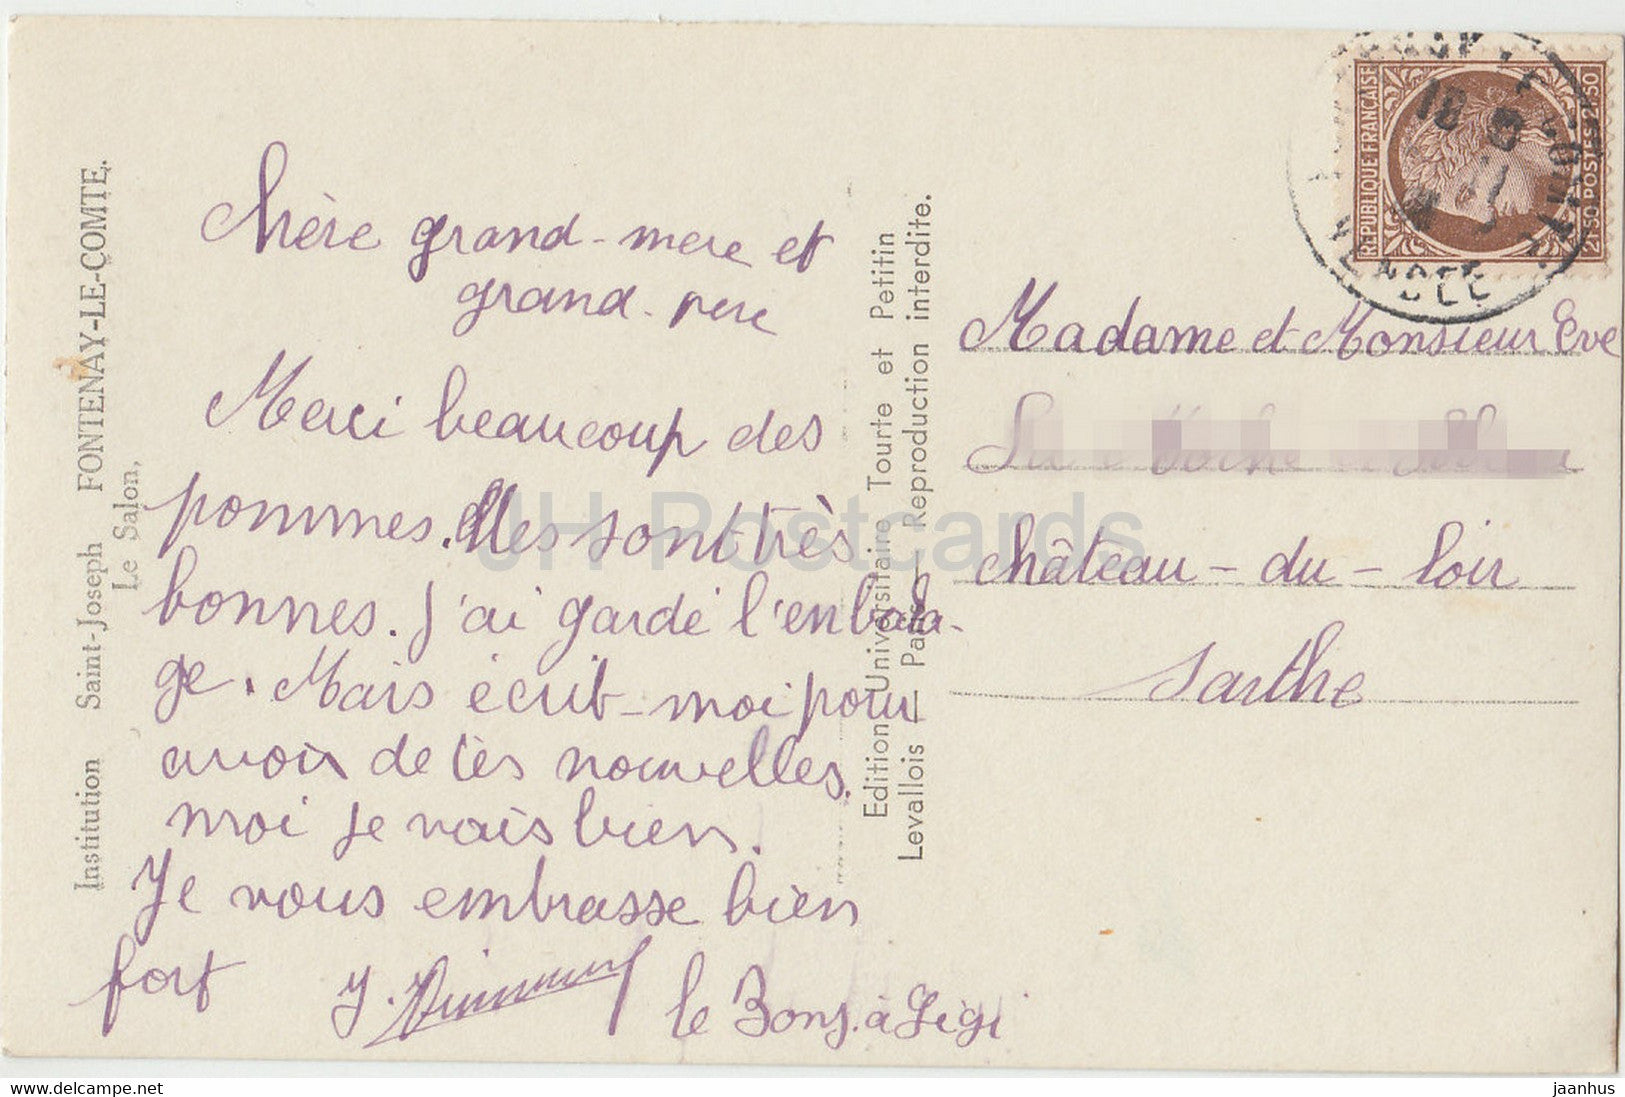 Institution Saint-Joseph FONTENAY-LE-COMTE.
Le Salon,
Chère grand-mere et
grand-pere
Merci beaucoup des
pommes. elles sont très
bonnes. J'ai gardé l'enbala-
ge. Mais écrit-moi pour
avoir de tès nouvelles.
moi je vais bien.
Je vous embrasse bien
fort
le Bons. à Gigi
Edition Universitaire Tourte et Petitin
Levallois — Paris — Reproduction interdite.
REPUBLIQUE FRANÇAISE
2F50 POSTES 2F50
18
VENDEE
Madame et Monsieur Eve
château-du-loir
Sarthe
JH Postcards
www.delcampe.net
jaanhus